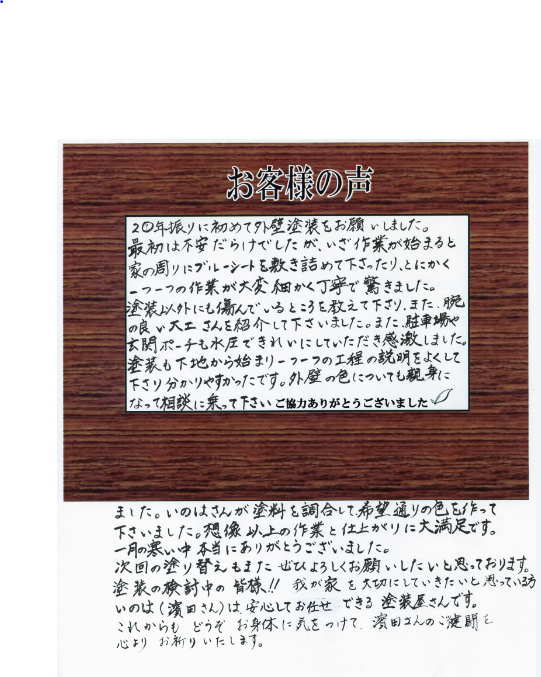 お客様の声
20年振りに初めて外壁塗装をお願いしました。
最初は不安だらけでしたが、いざ作業が始まると
家の周りにブルーシートを敷き詰めて下さったり、とにかく
一つ一つの作業が大変細かく丁寧で驚きました。
塗装以外にも傷んでいるところを教えて下さり、また、腕
の良い大工さんを紹介して下さいました。また、駐車場や
玄関ポーチも水圧できれいにしていただき感激しました。
塗装も下地から始まり一つ一つの工程の説明をよくして
下さり分かりやすかったです。外壁の色についても親身に
なって相談に乗って下さい ご協力ありがとうございました
ました。いのはさんが塗料を調合して、希望通りの色を作って
下さいました。想像以上の作業と仕上がりに大満足です。
一月の寒い中本当にありがとうございました。
次回の塗り替えもまた ぜひよろしくお願いしたいと思っております。
塗装の検討中の皆様!! 我が家を大切にしていきたいと思っている方
いのは(濱田さん)は、安心してお任せできる塗装屋さんです。
これからも どうぞ お身体に気をつけて、濱田さんのご健闘を
心より お祈りいたします。